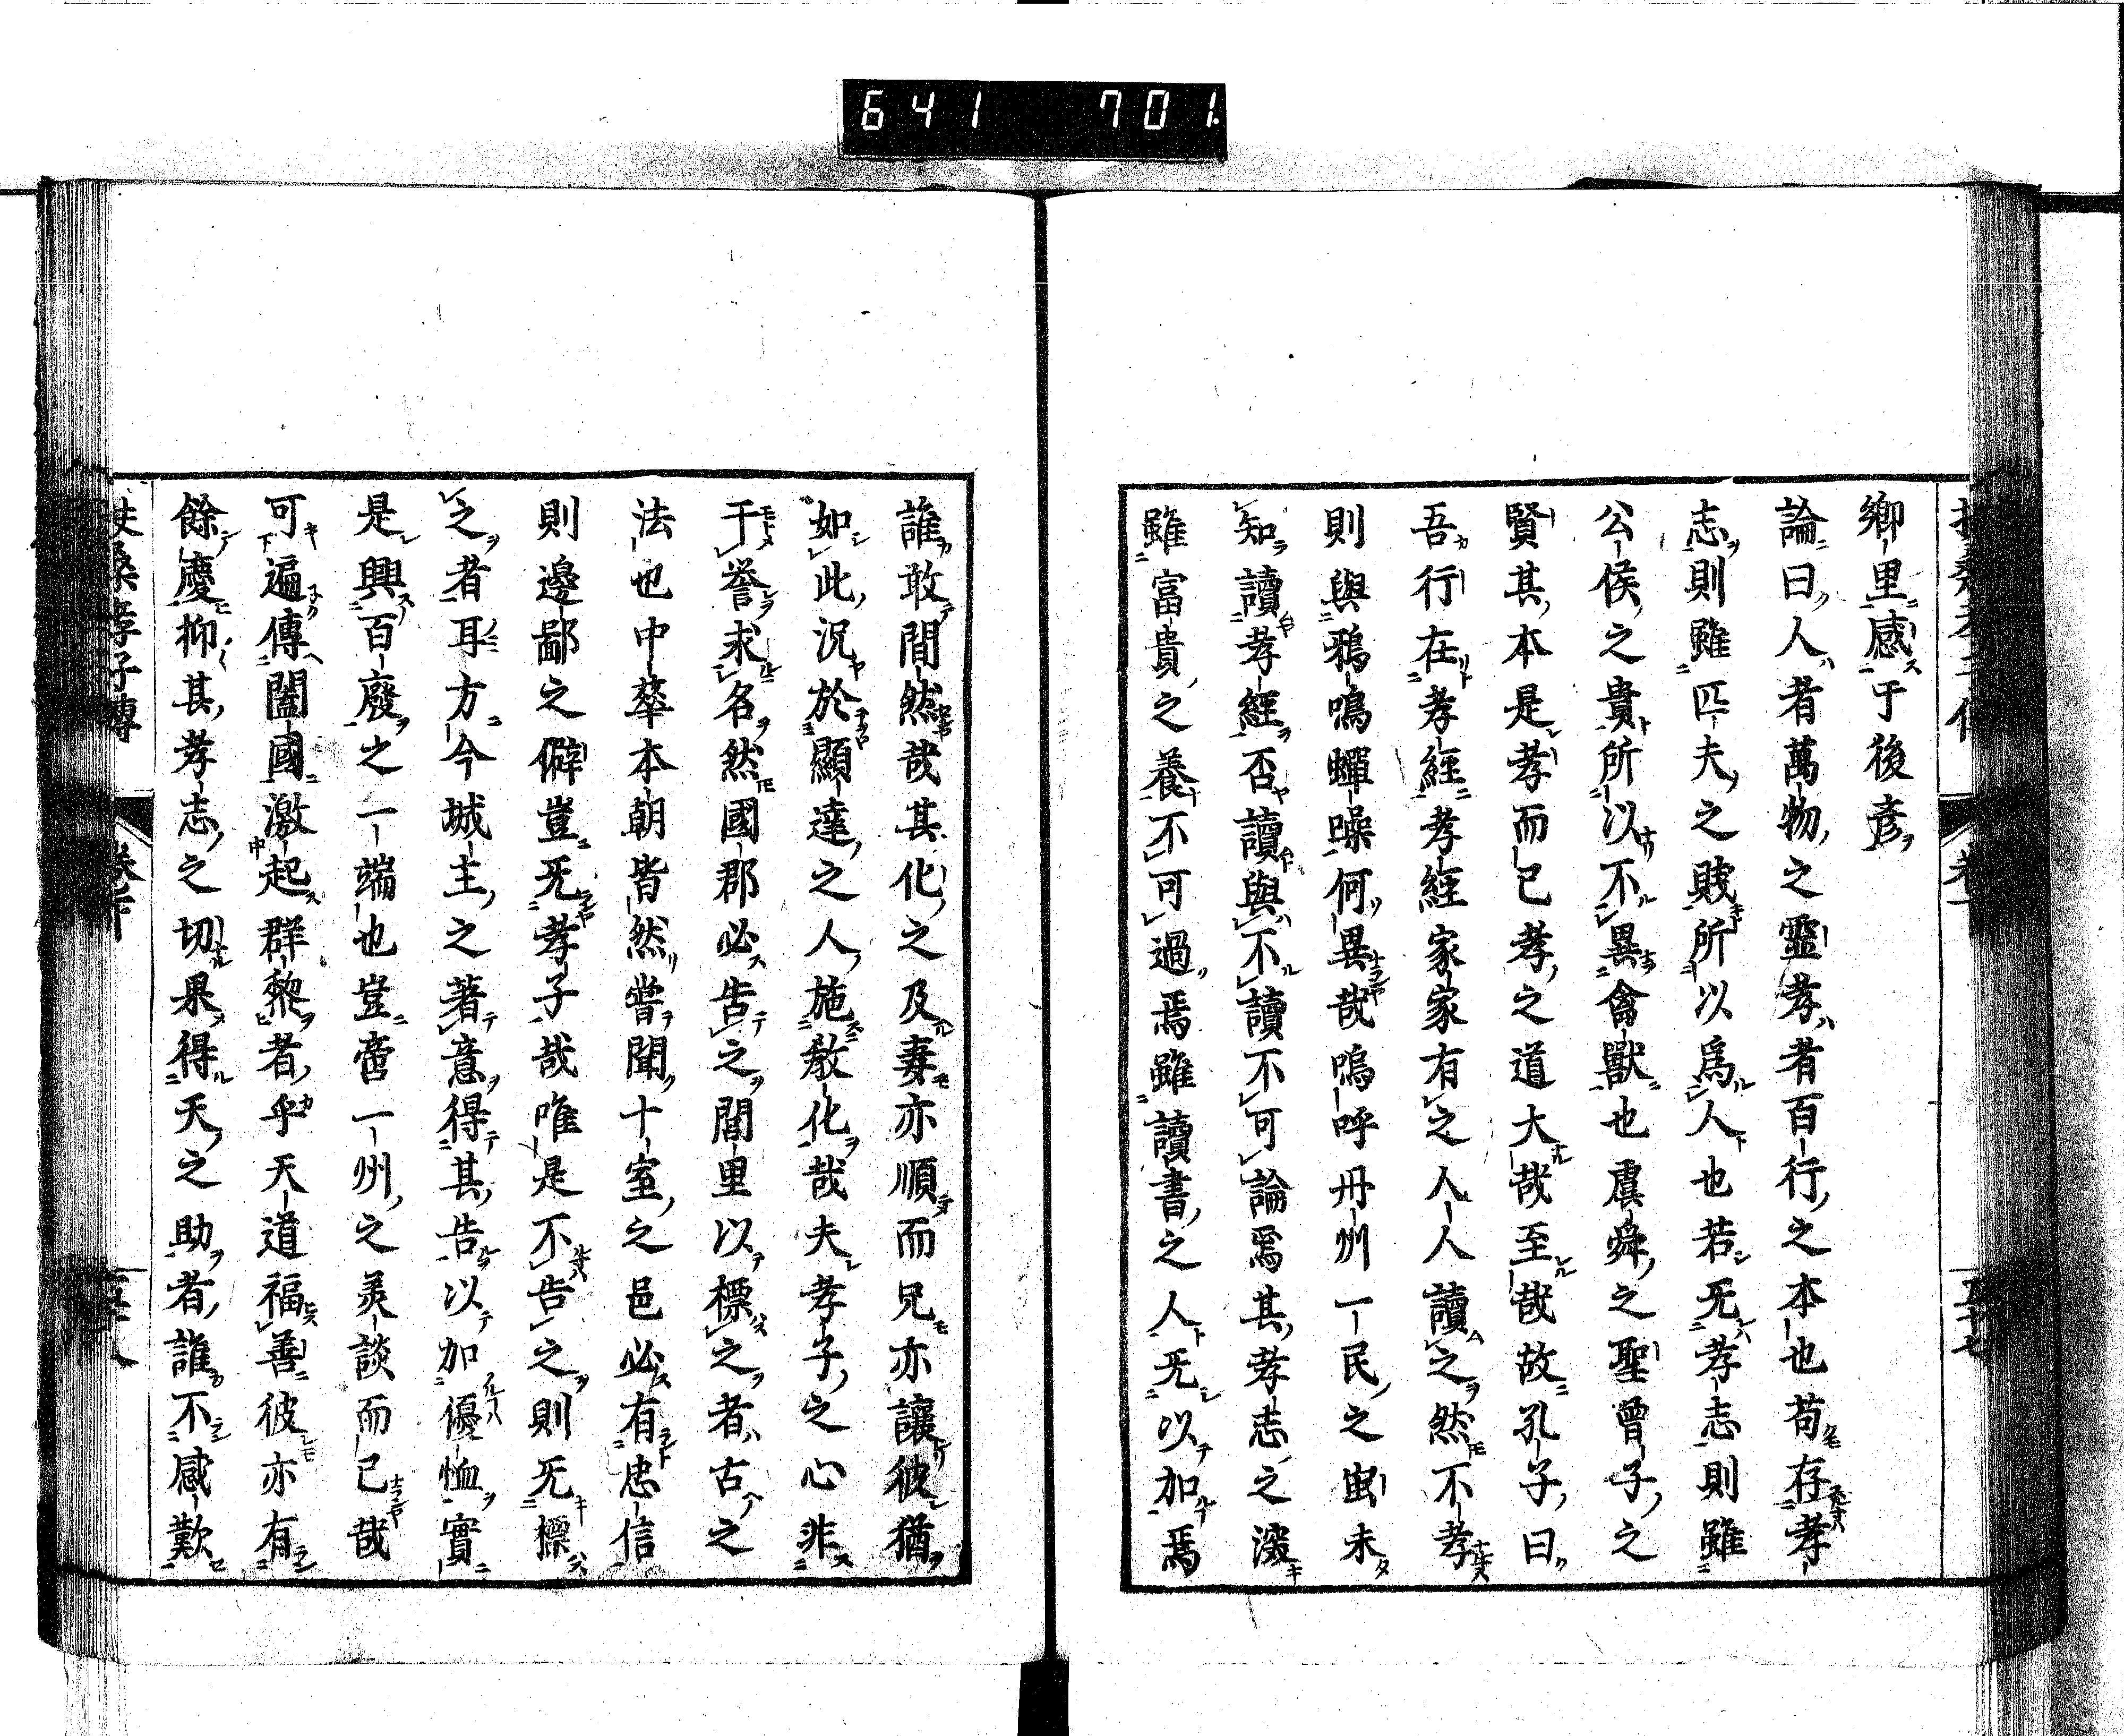 641 701
鄉里感于後彥
論曰人者萬物之靈孝者百行之本也苟存孝
志則雖匹夫之賤所以爲人也若无孝志則雖
公侯之貴所以不異禽獸也虞舜之聖曾子之
賢其本是孝而已孝之道大哉至哉故孔子曰
吾行在孝經孝經家家有之人人讀之然不孝
則與鴉鳴蟬噪何異哉嗚呼丹州一民之蚩未
知讀孝經否讀與不讀不可論焉其孝志之深
雖富貴之養不可過焉雖讀書之人无以加焉
誰敢間然哉其化之及妻亦順而兄亦讓彼猶
如此況於顯達之人施敎化哉夫孝子之心非
干譽求名然國郡必告之閭里以標之者古之
法也中華本朝皆然嘗聞十室之邑必有忠信
則邊鄙之僻豈无孝子哉唯是不告之則无標
之者耳方今城主之著意得其告以加優恤實
是興百廢之一端也豈啻一州之美談而已哉
可遍傳闔國激起群黎者乎天道福善彼亦有
餘慶抑其孝志之切果得天之助者誰不感歎
扶桑孝子傳